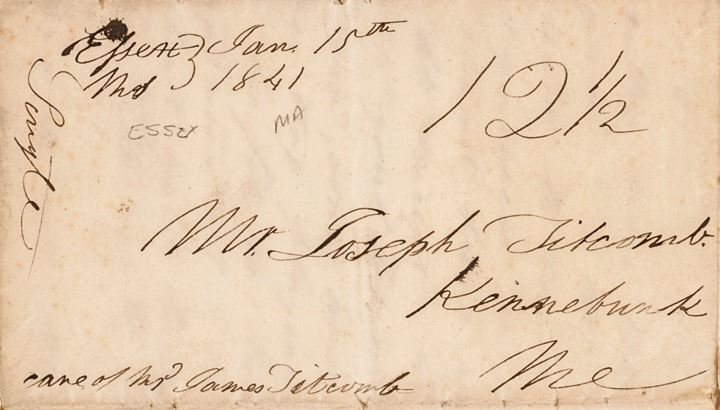 Essex } Jan. 15th
Ms } 1841
12 1/2
ESSEX MA
Single
Mr. Joseph Titcomb.
Kennebunk
Me
care of Mr James Titcomb